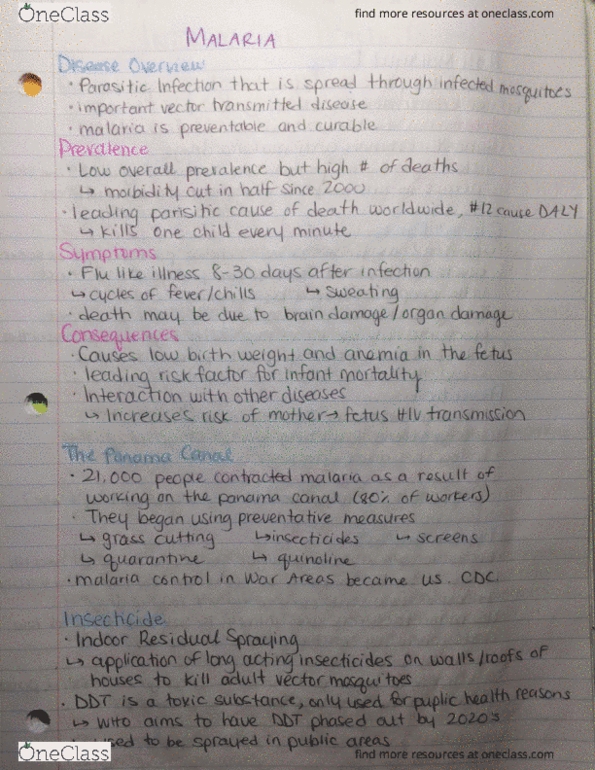 OneClass
find more resources at oneclass.com
MALARIA
Disease Overview
• Parasitic Infection that is spread through infected mosquitoes
• important vector transmitted disease
• malaria is preventable and curable
Prevalence
• Low overall prevalence but high # of deaths
↳ morbidity cut in half since 2000
• leading parisitic cause of death worldwide, #12 cause DALY
↳ kills one child every minute
Symptoms
• Flu like illness 8-30 days after infection
↳ cycles of fever/chills ↳ sweating
• death may be due to brain damage/organ damage
Consequences
• Causes low birth weight and anemia in the fetus
• leading risk factor for infant mortality
• Interaction with other diseases
↳ Increases risk of mother→ fetus HIV transmission
The Panama Canal
• 21,000 people contracted malaria as a result of
working on the panama canal (80% of workers)
• They began using preventative measures
↳ grass cutting ↳ insecticides ↳ screens
↳ quarantine ↳ quinoline
• malaria control in War Areas became us. CDC
Insecticide
• Indoor Residual Spraying
↳ application of long acting insecticides on walls/roofs of
houses to kill adult vector mosquitoes
• DDT is a toxic substance, only used for public health reasons
↳ WHO aims to have DDT phased out by 2020s
used to be sprayed in public areas
OneClass
find more resources at oneclass.com